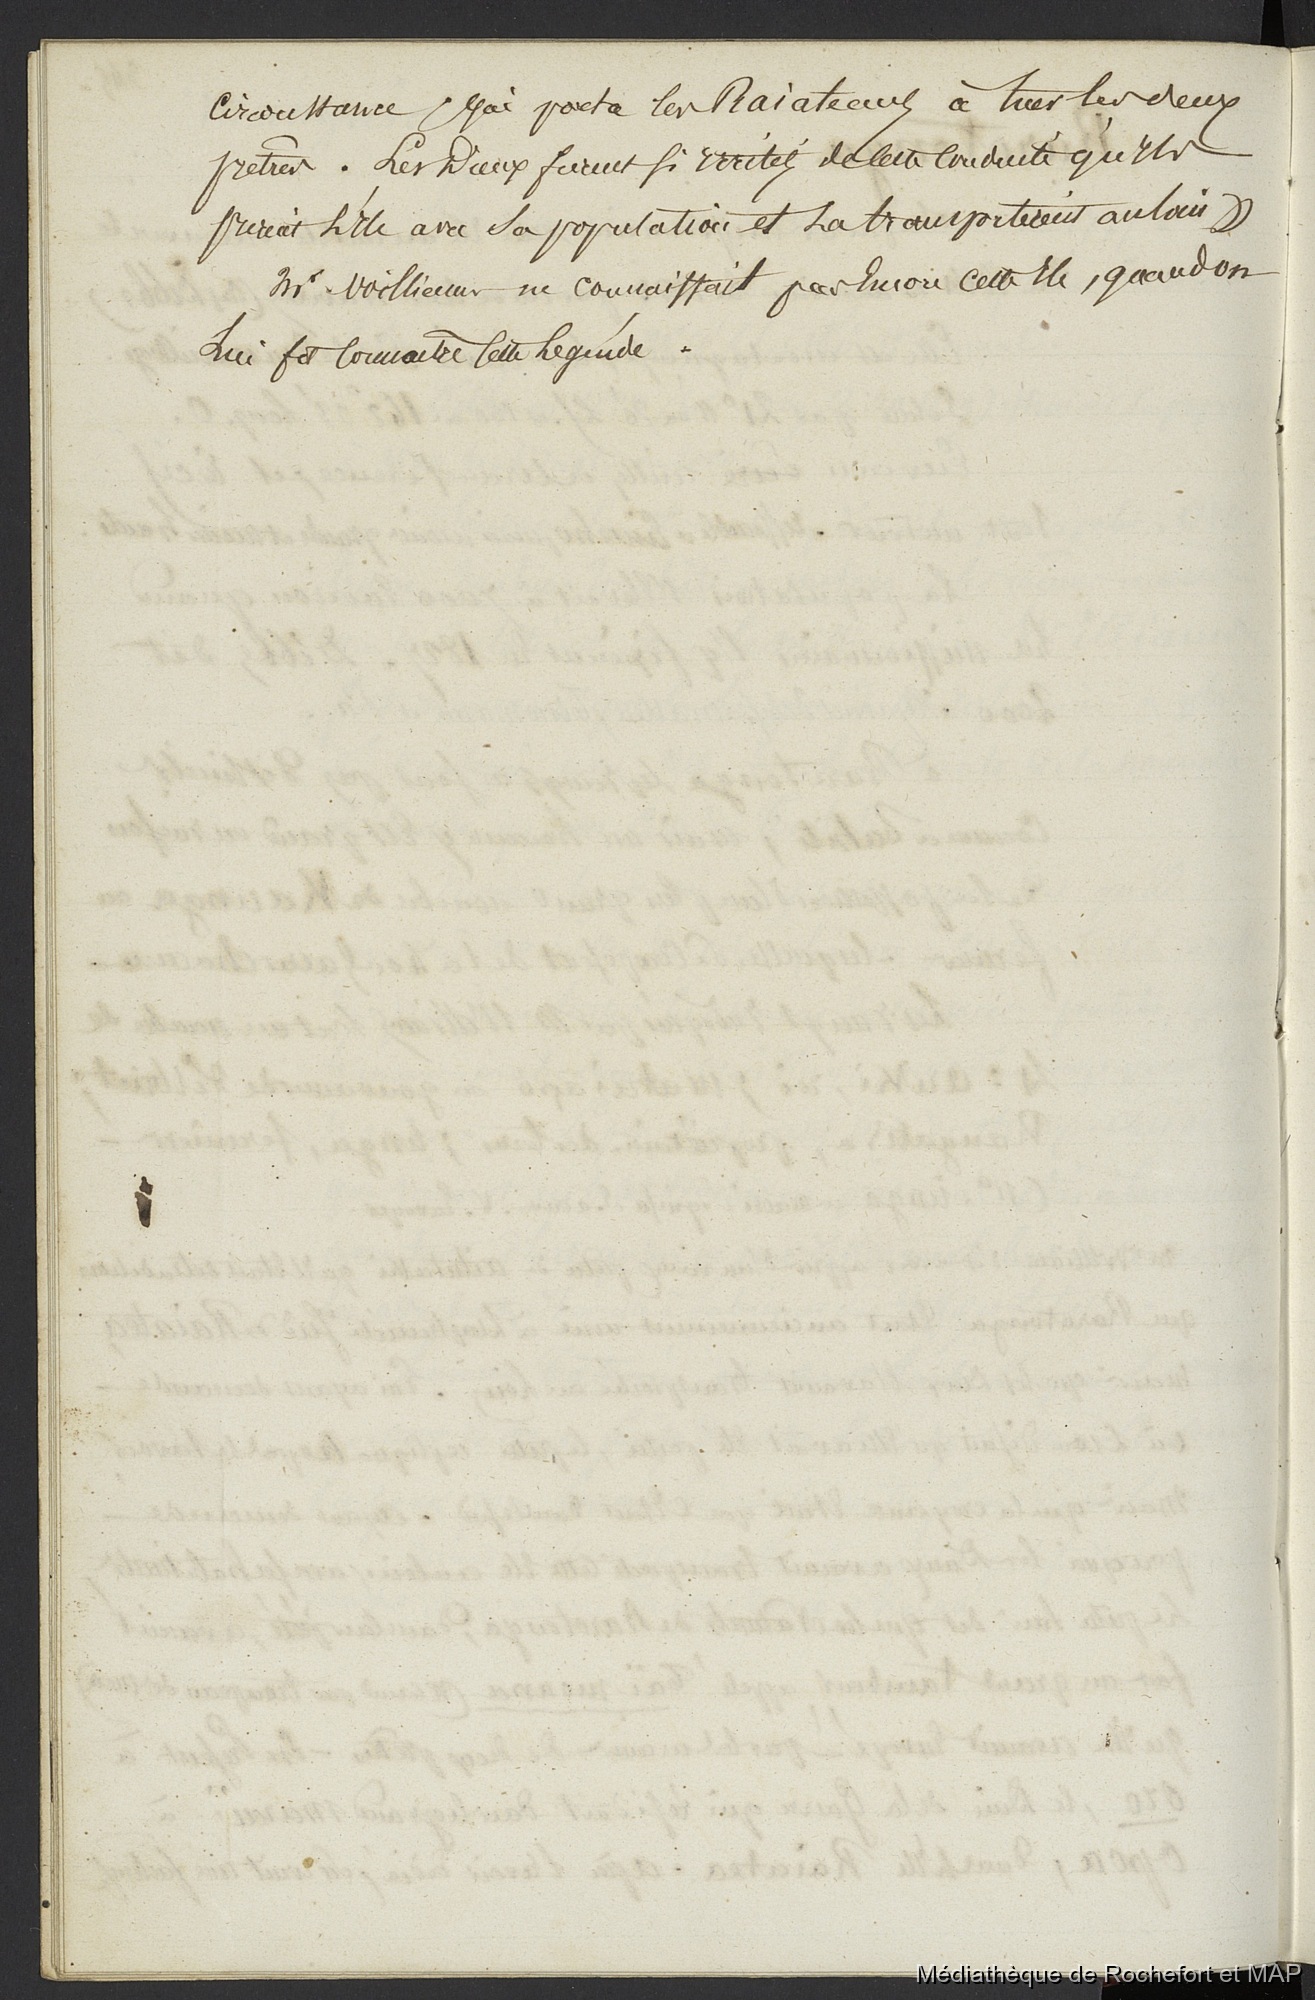 circonstance, qui porta les Raiateans à tuer les deux
prêtres. Les Dieux furent si irrités de cette Conduite qu'ils
prirent l'ile avec sa population et la transportèrent au loin »
Mr Williams ne connaissait pas Encore cette Ile, quand on
Lui fit connaitre cette Légende.
Médiathèque de Rochefort et MAP